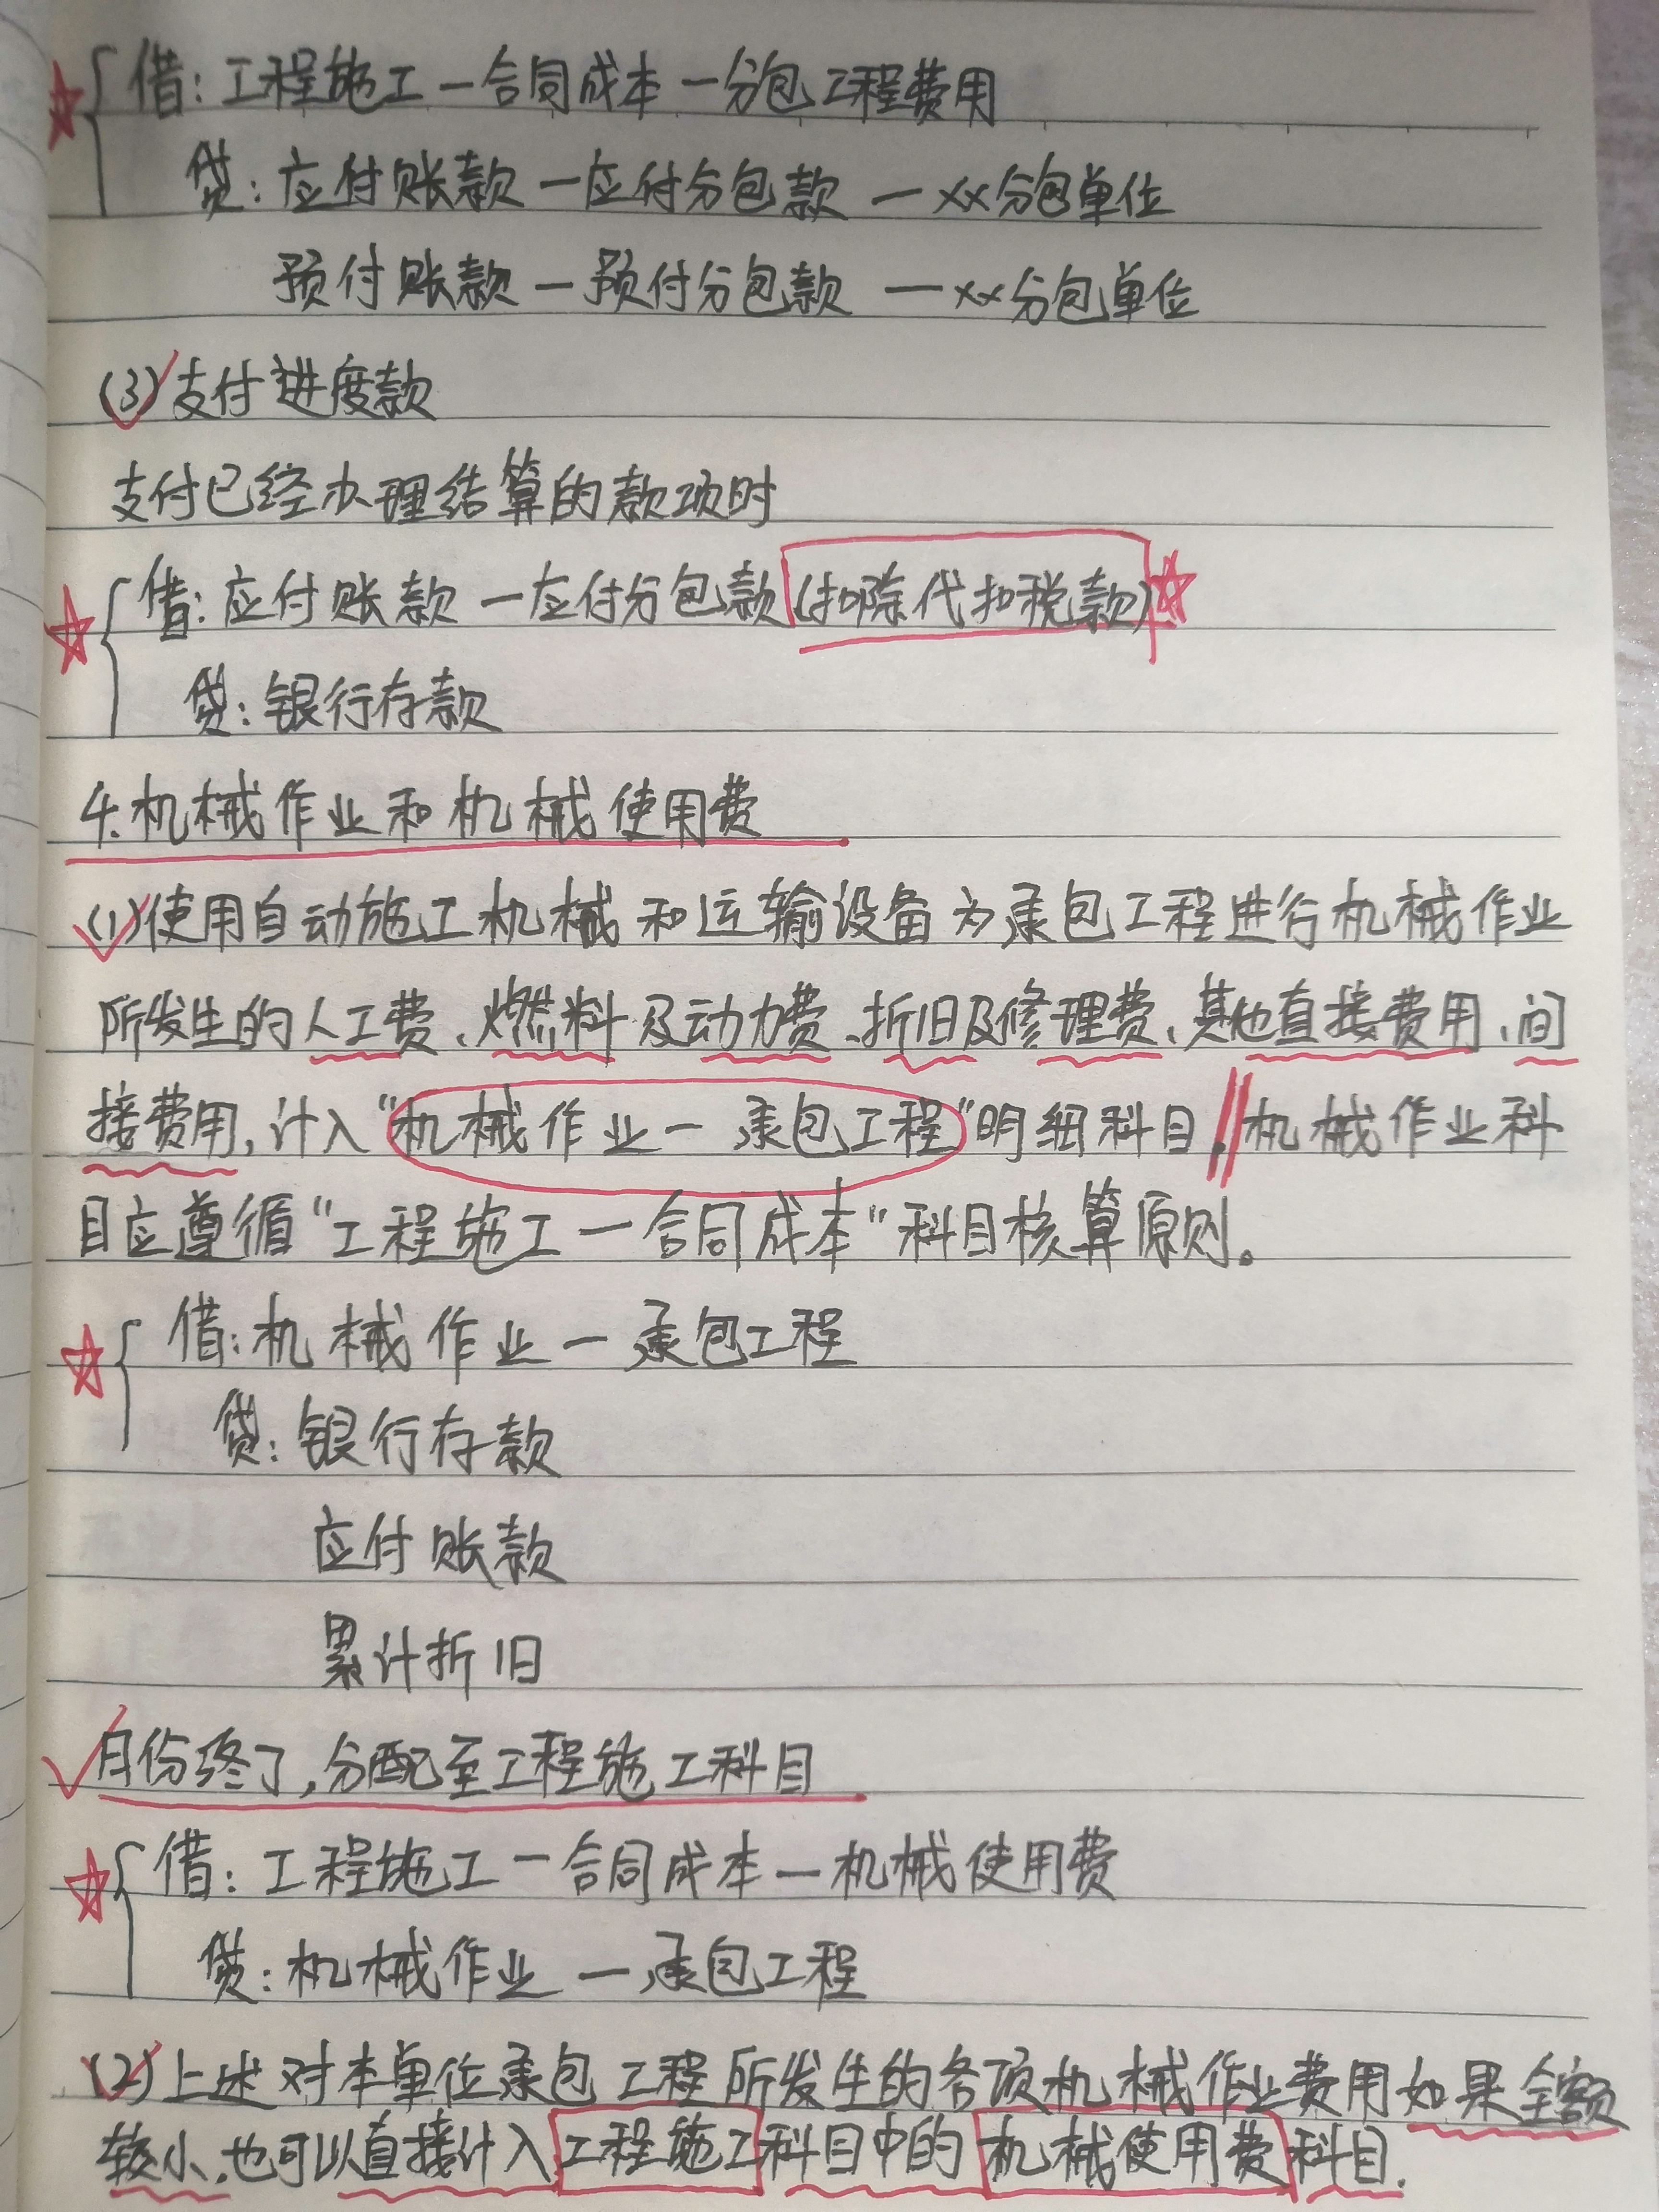 借:工程施工一合同成本一分包工程费用
贷:应付账款一应付分包款一xx分包单位
预付账款一预付分包款一xx分包单位
(3)支付进度款
支付已经办理结算的款项时
借:应付账款一应付分包款(扣除代扣税款)
贷:银行存款
4.机械作业和机械使用费
(1)使用自动施工机械和运输设备为承包工程进行机械作业
所发生的人工费、燃料及动力费、折旧及修理费、其他直接费用、间
接费用,计入"机械作业一承包工程"明细科目。机械作业科
目应遵循"工程施工一合同成本"科目核算原则。
借:机械作业一承包工程
贷:银行存款
应付账款
累计折旧
月份终了,分配至工程施工科目
借:工程施工一合同成本一机械使用费
贷:机械作业一承包工程
(2)上述对本单位承包工程所发生的各项机械作业费用如果金额
较小,也可以直接计入工程施工科目中的机械使用费科目.